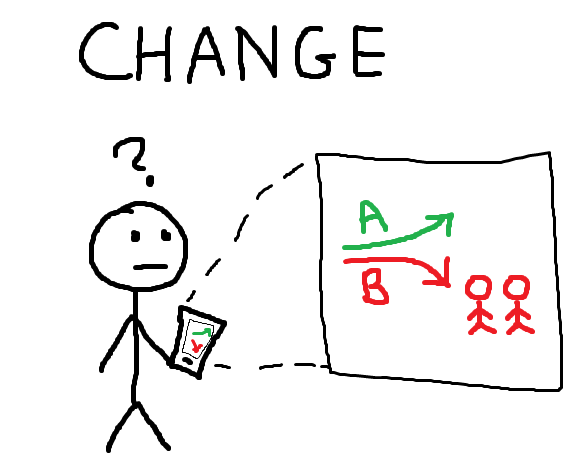 CHANGE
?
A
B